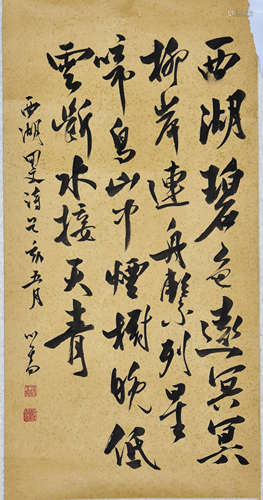 西湖碧色遠冥冥
柳岸連舟繫列星
啼鳥山中煙樹晚低
雲斷水接天青
西湖即事詩乙亥五月
心畬